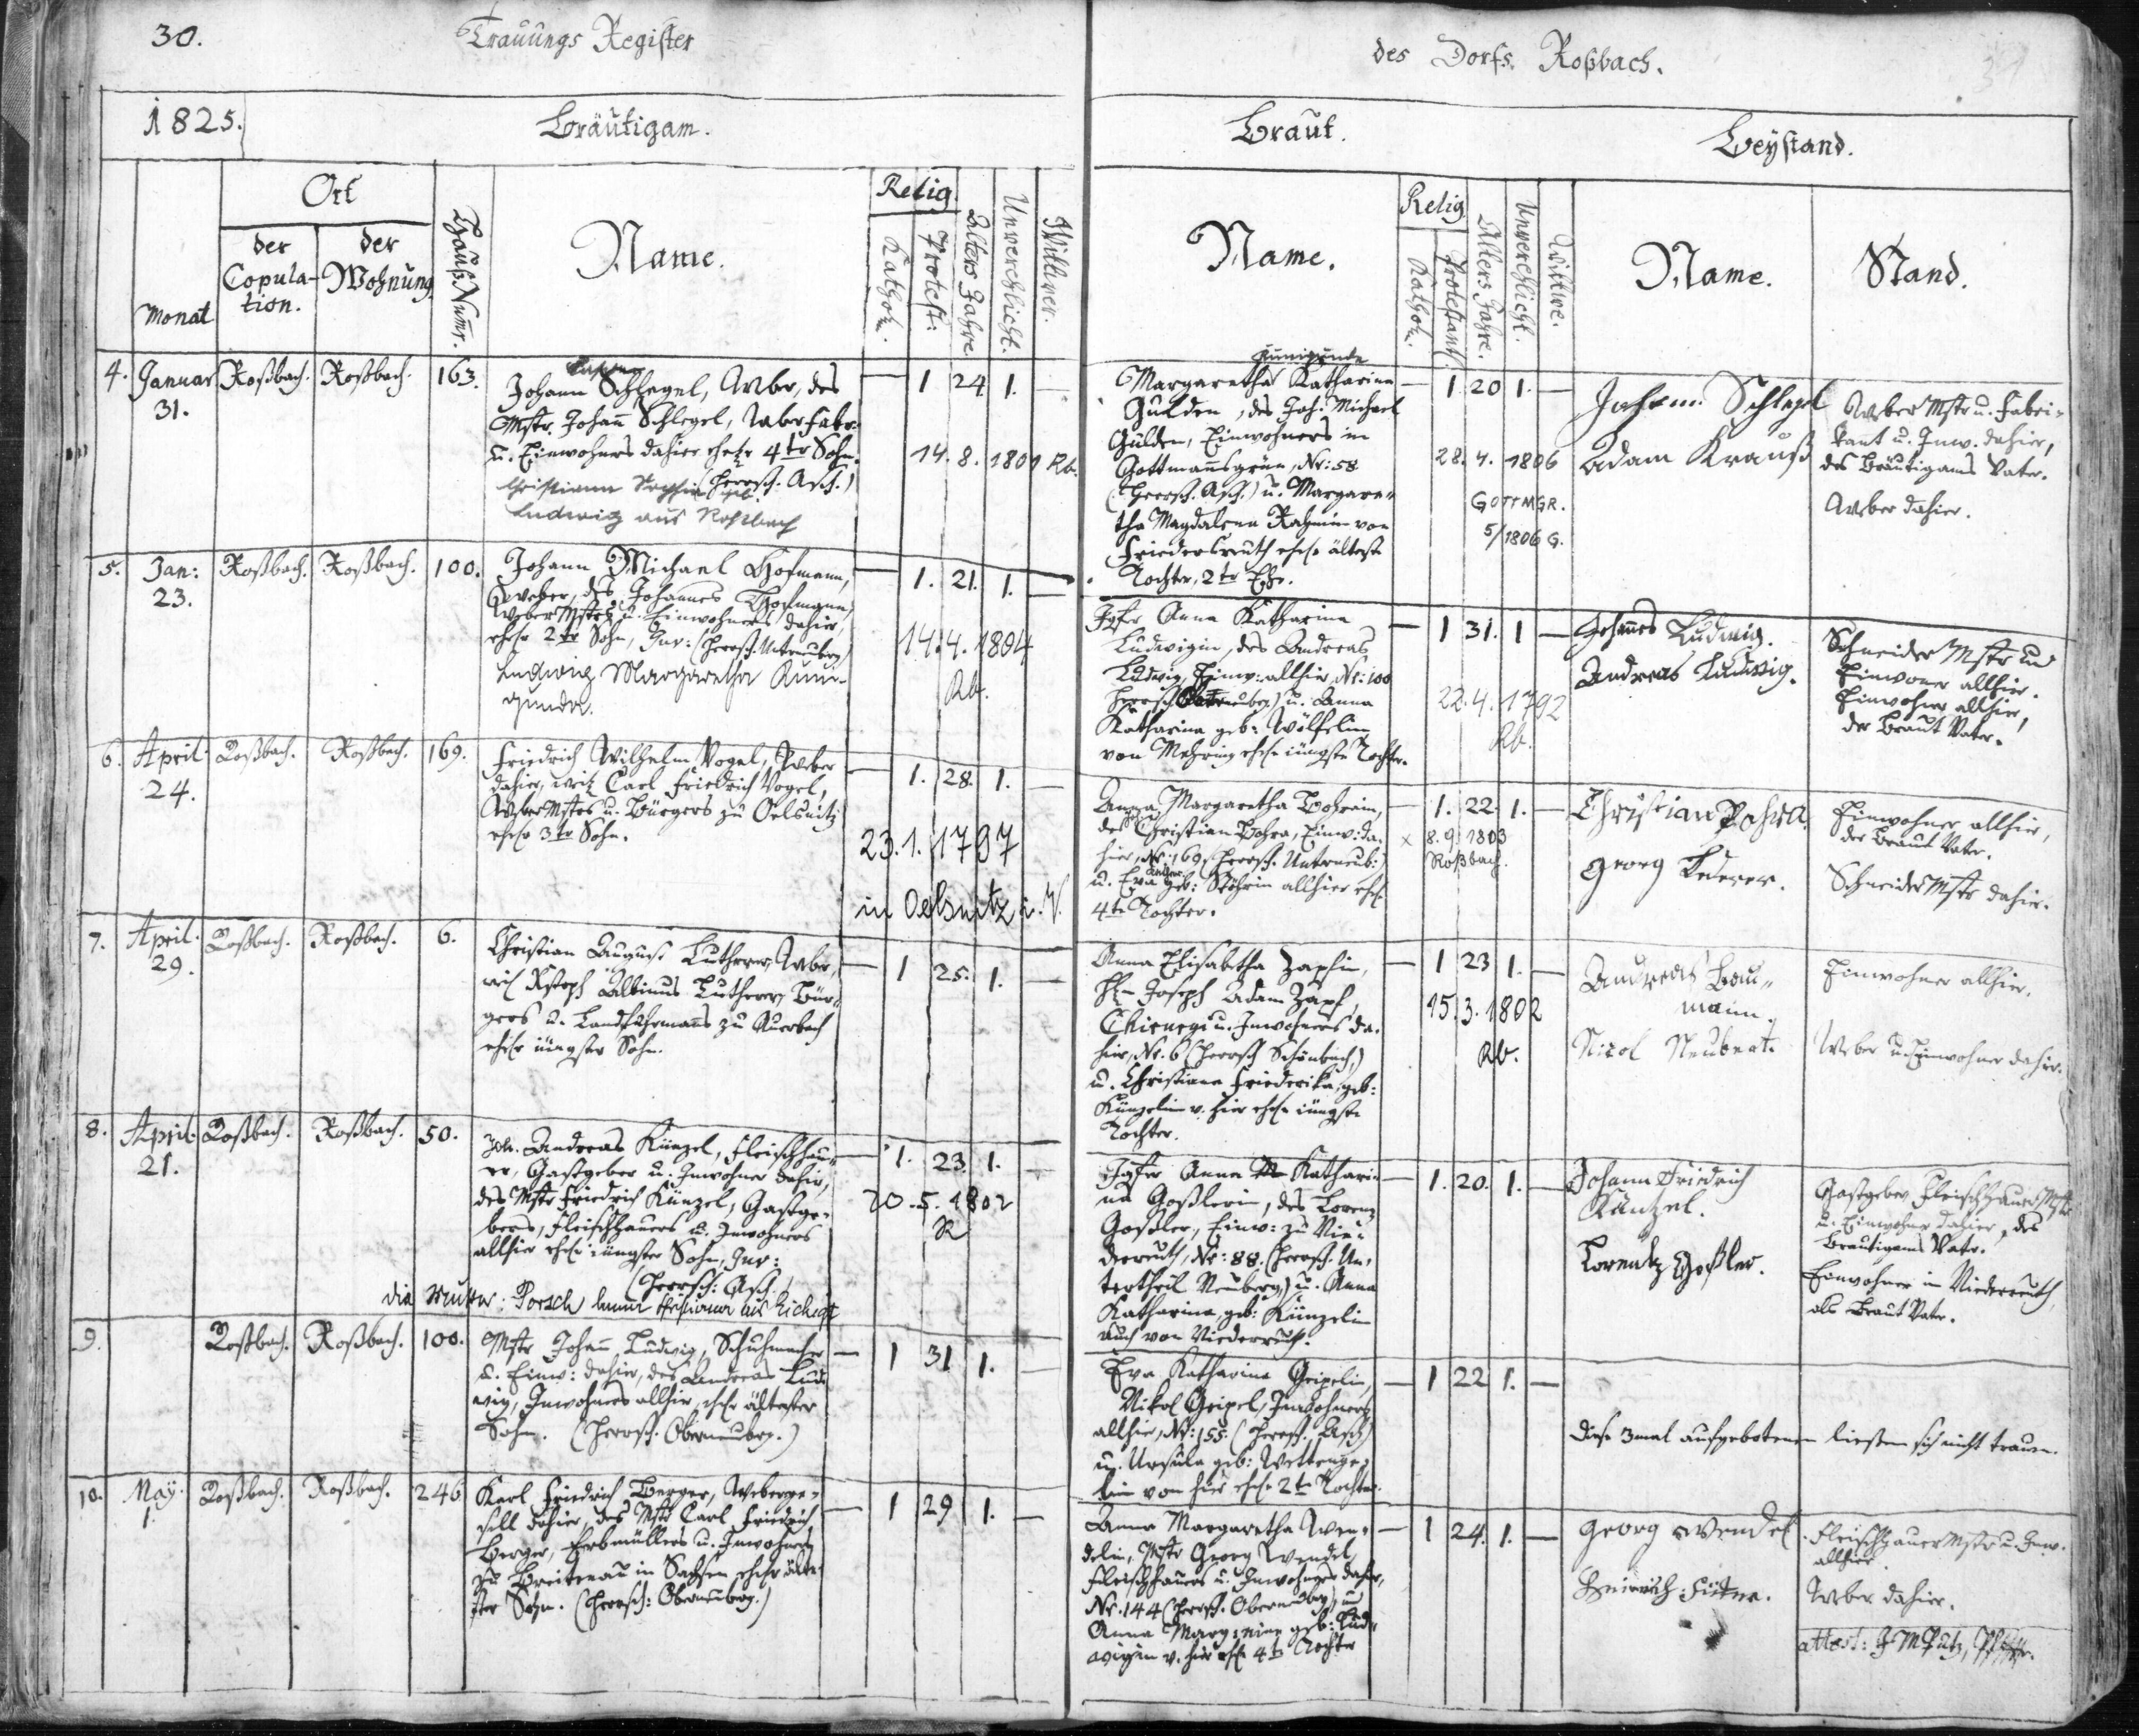 30.
Trauungs Register
des Dorfs Roßbach.
1825.
Bräutigam.
Braut.
Beystand.
Monat
Ort
der Copula-
tion.
der
Wohnung
Hauß Numr.
Name.
Relig.
Kathol.
Protest:
Alters Jahre
Unverehlicht.
Wittwer.
Name.
Relig
Kathol.
Protestant
Alters Jahre.
Unverehlicht.
Wittwe.
Name.
Stand.
4. Januar Roßbach. Roßbach. 163.
31.
Johann Schlegel, Weber, des
Mstr. Johann Schlegel, Weber Fabr:
u. Einwohners dahier ehel. 4ter Sohn.
(Herrsch. Asch.)
Christiana Sophia geb.
Ludwig aus Roßbach
— 1 24 1. —
14. 8. 1801 Rb.
Kunigunda
Margaretha Katharina
Gulden, des Joh. Michael
Gulden, Einwohners in
Gottmannsgrün, Nr: 58
(Herrsch. Asch.) u. Margare-
tha Magdalena Rahmin von
Friedersreuth ehel. älteste
Tochter, 2ter Ehe.
— 1. 20 1. —
28. 4. 1806
GOTTMGR.
5/1806 G.
Johann Schlegel
Adam Krauß
Weber Mstr u. Fabri-
kant u. Inw. dahier,
des Bräutigams Vater.
Weber dahier.
5. Jan: Roßbach. Roßbach. 100.
23.
Johann Michael Hofmann,
Weber, des Johannes Hofmann
Weber Mstrs u. Einwohners dahier,
ehel. 2ter Sohn, Inv: (Herrsch. Unterneuberg)
Ludwig Margaretha Kuni-
gunda.
— 1. 21. 1. —
14. 4. 1804
Rb.
Jgfr Anna Katharina
Ludwigin, des Andreas
Ludwig, Einw: allhier, Nr: 100
Herrsch. Oberneuberg) u. Anna
Katharina geb: Wölfelin
von Mehring ehel. jüngste Tochter.
— 1 31. 1 —
22. 4. 1792
Rb.
Johannes Ludwig.
Andreas Ludwig.
Schneider Mstr und
Einwoner allhier.
Einwohner allhier,
der Braut Vater.
6. April Roßbach. Roßbach. 169.
24.
Friedrich Wilhelm Vogel, Weber
dahier, weil. Carl Friedrich Vogel,
Weber Mstrs u. Bürgers zu Oelsnitz
ehel. 3ter Sohn.
— 1. 28. 1. —
23. 1. 1797
in Oelsnitz i. V.
Anna Margaretha Pohrin,
des Christian Pohra, Einw: da-
hier, Nr: 169, (Herrsch. Unterneub:)
u. Eva geb: Röhrin allhier ehel.
4te Tochter.
— 1. 22. 1. —
x 8. 9. 1803
Roßbach.
Christian Pohra.
Georg Lederer.
Einwohner allhier,
der Braut Vater.
Schneider Mstr dahier.
7. April. Roßbach. Roßbach. 6.
29.
Christian August Lutherer, Weber,
weil. Kstoph Albinus Lutherer, Bür-
gers u. Landfuhrmanns zu Auerbach
ehel. jüngster Sohn.
— 1 25. 1. —
Anna Elisabetha Zapfin,
H. Joseph Adam Zapf,
Chirurgi u. Inwohners da-
hier, Nr. 6 (Herrsch Schönbach,)
u. Christiana Friederika, geb:
Künzelin v. hier ehel. jüngste
Tochter.
— 1 23 1. —
15. 3. 1802
Rb.
Andreas Bau-
mann.
Nicol Neubert.
Einwohner allhier.
Weber u. Einwohner dahier.
8. April. Roßbach. Roßbach. 50.
21.
Joh. Andreas Künzel, Fleischhau-
er, Gastgeber u. Inwohner dahier,
des Mstr Friedrich Künzel, Gastge-
bers, Fleischhauers u. Inwohners
allhier ehel. jüngster Sohn, Inv:
(Herrsch: Asch.)
die Mutter: Porsch Anna Christiana aus Eichigt
— 1. 23. 1. —
20. 5. 1802
R
Jgfr Anna Kathari-
na Goßlerin, des Lorenz
Goßler, Einw: zu Nie-
derreuth, Nr: 88. (Herrsch. Un-
tertheil Neuberg) u. Anna
Katharina, geb: Künzelin
auch von Niederreuth.
— 1. 20. 1. —
Johann Friedrich
Küntzel.
Lorentz Goßler.
Gastgeber, Fleischhauer Mstr
u. Einwohner dahier, des
Bräutigams Vater.
Einwohner in Niederreuth,
als Braut Vater.
9. Roßbach. Roßbach. 100.
Mstr Johann Ludwig, Schuhmacher
u. Einw: dahier, des Andreas Lud-
wig, Inwohners allhier, ehel. ältester
Sohn. (Herrsch. Oberneuberg.)
— 1 31 1. —
Eva Katharina Geipelin,
Nikol Geipel, Inwohners
allhier, Nr: 155. (Herrsch. Asch)
u. Ursula geb: Wettenge-
lin von hier ehel. 2te Tochter.
— 1 22 1. —
Diese 3mal aufgebotenen liessen sich nicht trauen.
10. May. Roßbach. Roßbach. 246
1.
Karl Friedrich Berger, Weberge-
sell dahier, des Mstr Carl Friedrich
Berger, Erbmüllers u. Inwohners
zu Breitenau in Sachsen ehel. älte-
ster Sohn. (Herrsch: Oberneuberg.)
— 1 29 1. —
Anna Margaretha Wen-
delin, Mstr Georg Wendel,
Fleischhauers u. Inwohners dahier,
Nr. 144 (Herrsch. Oberneuberg) u.
Anna Marg: geb: Lud-
wigin v. hier ehel. 4te Tochter
— 1 24. 1. —
Georg Wendel.
Heinrich
Fleischhauer Mstr u. Inw.
allhier.
Weber dahier.
attest: J M Putz, Pfarr.